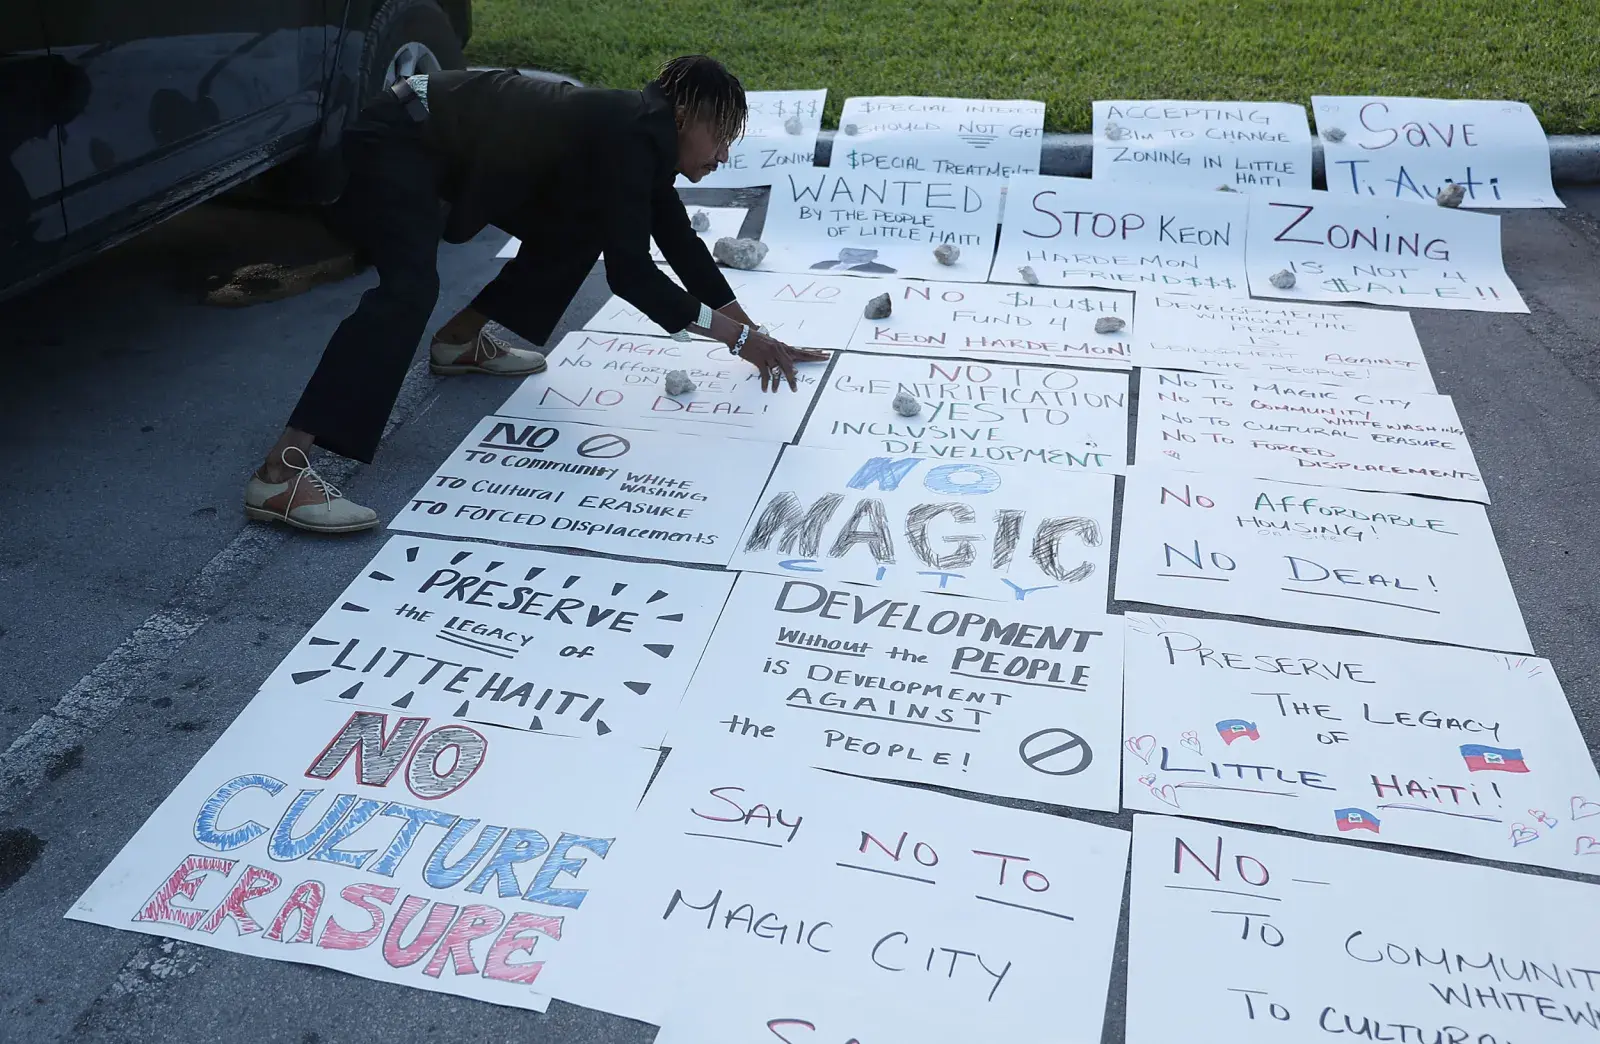 R $$$
HE ZONING
$PECIAL INTEREST
SHOULD NOT GET
$PECIAL TREATMENT
ACCEPTING
$31M TO CHANGE
ZONING IN LITTLE
HAITI
SAVE
Ti Ayiti
WANTED
BY THE PEOPLE
OF LITTLE HAITI
STOP KEON
HARDEMON
FRIEND$$$
ZONING
IS NOT 4
$ALE!!
NO
NO $LU$H
FUND 4
KEON HARDEMON!
DEVELOPMENT
WITHOUT THE
PEOPLE
IS
DEVELOPMENT AGAINST
THE PEOPLE!
MAGIC
NO AFFORDABLE HOUSING
ON SITE!
NO DEAL!
NO TO
GENTRIFICATION
YES TO
INCLUSIVE
DEVELOPMENT
NO TO MAGIC CITY
NO TO COMMUNITY
WHITEWASHING
NO TO CULTURAL ERASURE
NO TO FORCED
DISPLACEMENTS
NO
TO COMMUNITY WHITE
WASHING
TO CULTURAL ERASURE
TO FORCED DISPLACEMENTS
NO
MAGIC
CITY
NO AFFORDABLE
HOUSING!
ON SITE
NO DEAL!
PRESERVE
the LEGACY of
LITTLE HAITI
DEVELOPMENT
Without the PEOPLE
is DEVELOPMENT
AGAINST
the PEOPLE!
PRESERVE
THE LEGACY
OF
LITTLE HAITI!
NO
CULTURE
ERASURE
SAY NO TO
MAGIC CITY
NO -
TO COMMUNIT
WHITEW
TO CULTURA